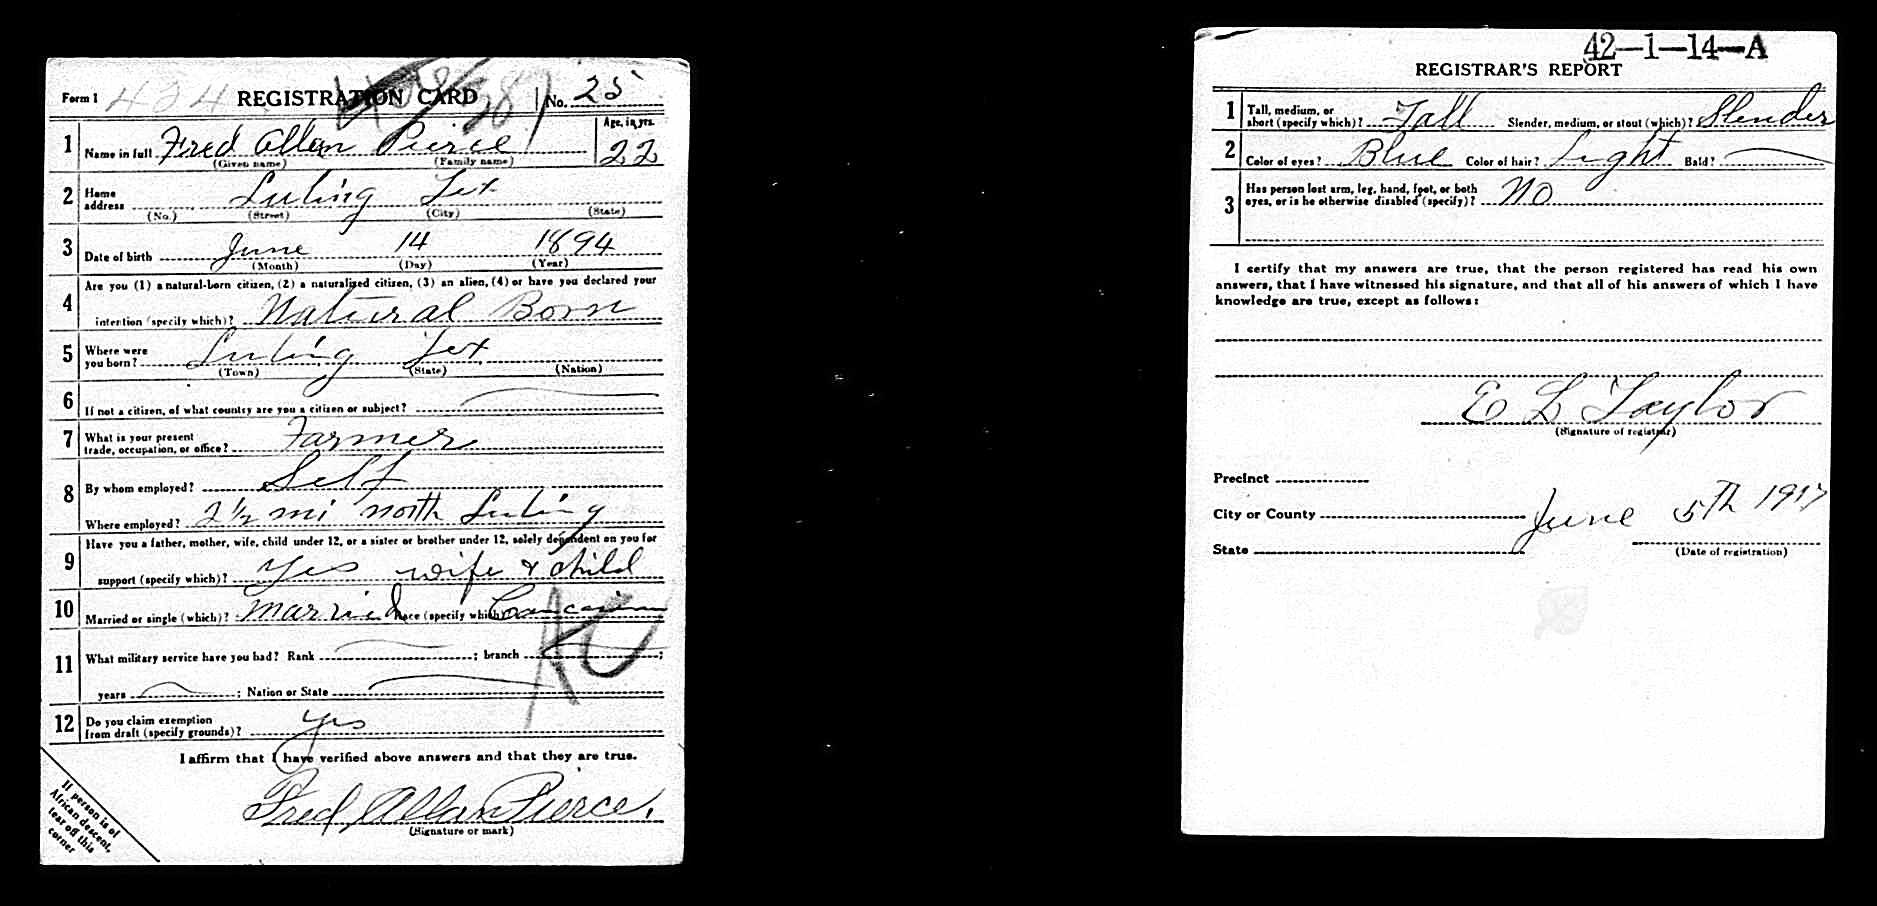 Form 1 434 REGISTRATION CARD No. 25
1 Name in full Fred Allen Pierce Age, in yrs. 22
(Given name) (Family name)
2 Home address Luling Tex
(No.) (Street) (City) (State)
3 Date of birth June 14 1894
(Month) (Day) (Year)
4 Are you (1) a natural-born citizen, (2) a naturalized citizen, (3) an alien, (4) or have you declared your
intention (specify which)? Natural Born
5 Where were you born? Luling Tex
(Town) (State) (Nation)
6 If not a citizen, of what country are you a citizen or subject?
7 What is your present trade, occupation, or office? Farmer
8 By whom employed? Self
Where employed? 2 1/2 mi north Luling
9 Have you a father, mother, wife, child under 12, or a sister or brother under 12, solely dependent on you for
support (specify which)? Yes wife & child
10 Married or single (which)? Married Race (specify which)? Caucasian
11 What military service have you had? Rank ; branch ;
years ; Nation or State
12 Do you claim exemption from draft (specify grounds)? Yes
I affirm that I have verified above answers and that they are true.
Fred Allan Pierce.
(Signature or mark)
If person is of
African descent,
tear off this
corner
42-1-14-A
REGISTRAR'S REPORT
1 Tall, medium, or short (specify which)? Tall Slender, medium, or stout (which)? Slender
2 Color of eyes? Blue Color of hair? Light Bald?
3 Has person lost arm, leg, hand, foot, or both eyes, or is he otherwise disabled (specify)? No
I certify that my answers are true, that the person registered has read his own
answers, that I have witnessed his signature, and that all of his answers of which I have
knowledge are true, except as follows:
E L Taylor
(Signature of registrar)
Precinct
City or County
State
June 5th 1917
(Date of registration)